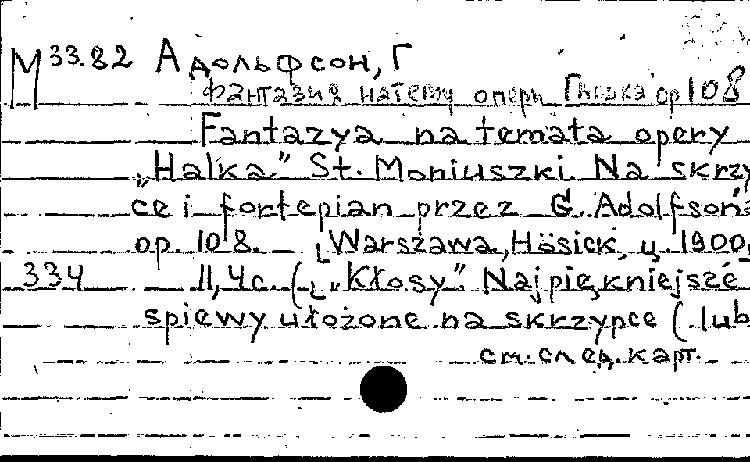 М 33.82 Адольфсон, Г
Фантазия на тему оперы Галька ор 108
Fantazya na temata opery
„Halka” St. Moniuszki. Na skrzy
ce i fortepian przez G. Adolfson
op. 108. [Warszawa, Hösick, ц. 1900,
334 11, 4 с. („Kłosy”. Najpiękniejsze
spiewy ułożone na skrzypce (lub
см. след. карт.